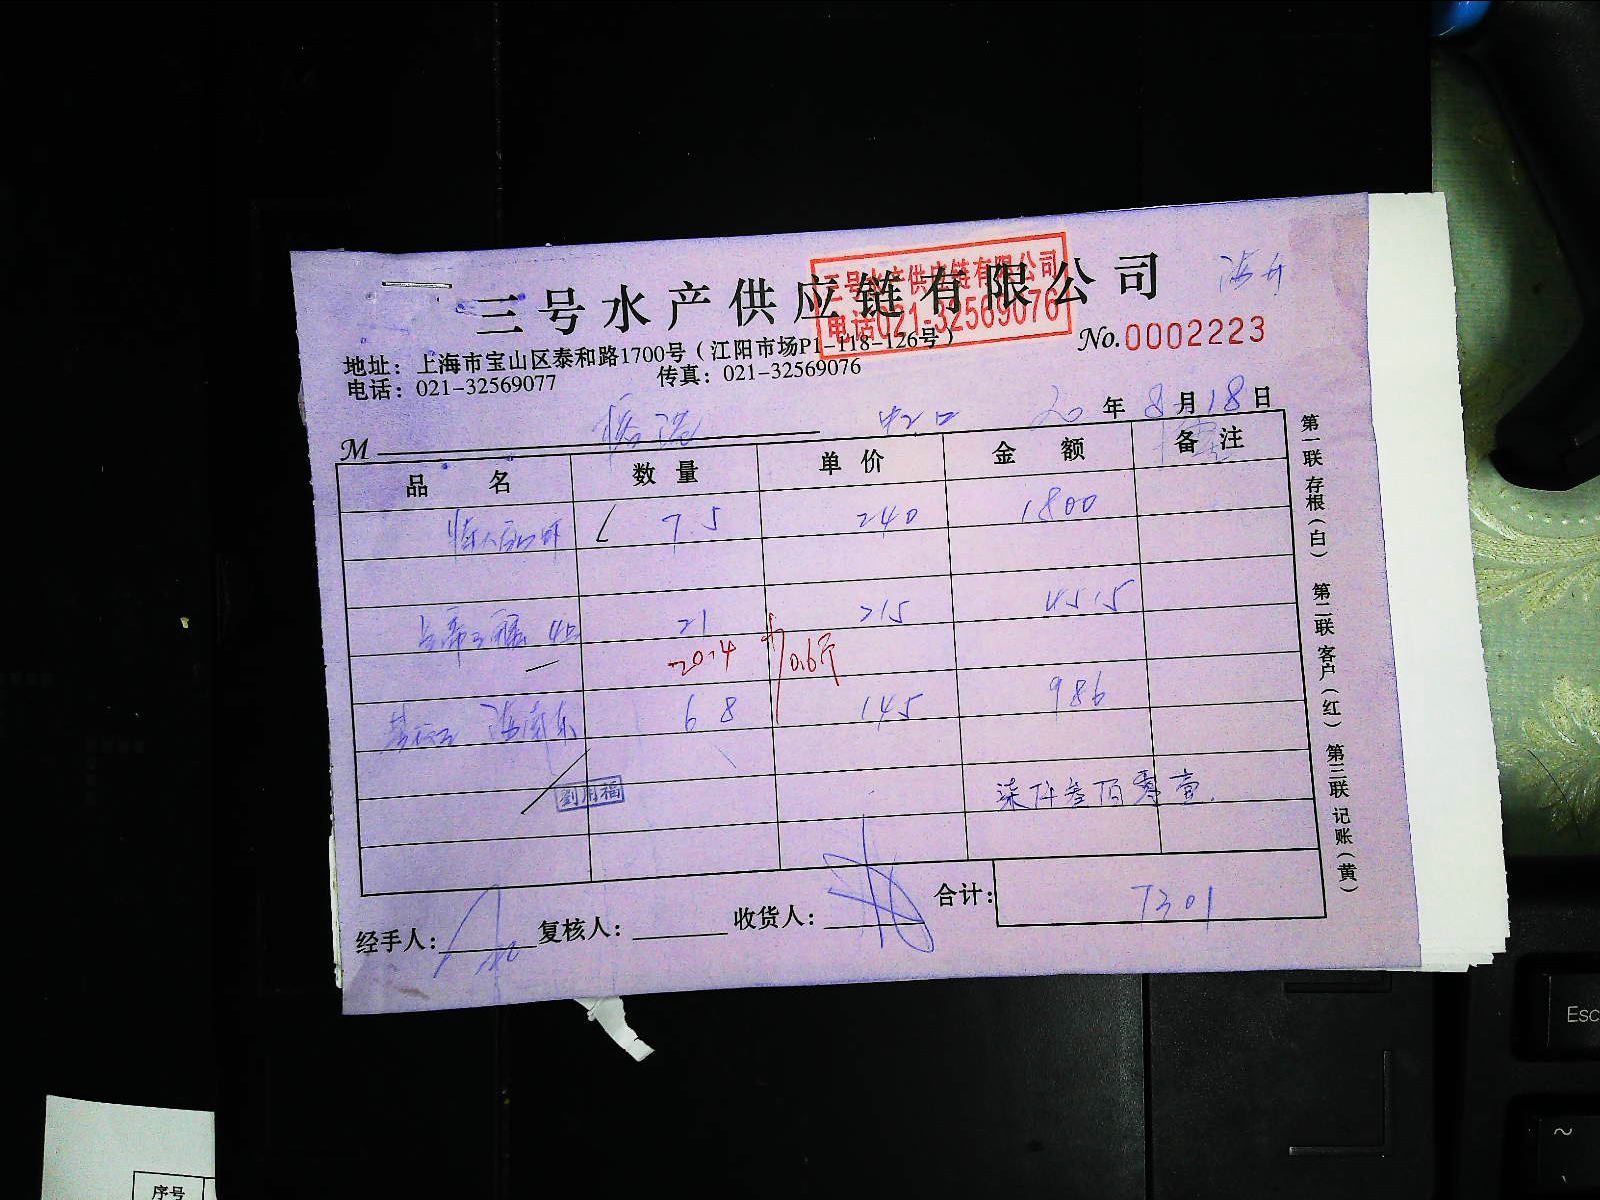 三号水产供应链有限公司
三号水产供应链有限公司
电话021-32569076
No.0002223
地址：上海市宝山区泰和路1700号（江阳市场P1-118-126号）
电话：021-32569077 传真：021-32569076
20年8月18日
M
品名 数量 单价 金额 备注
7.5 240 1800
21 215 4515
20.4 0.6斤
6 8 145 986
海南东
劉用福
柒仟叁佰零壹
经手人： 复核人： 收货人： 合计： 7301
第一联 存根（白） 第二联 客户（红） 第三联 记账（黄）
Esc
~
序号